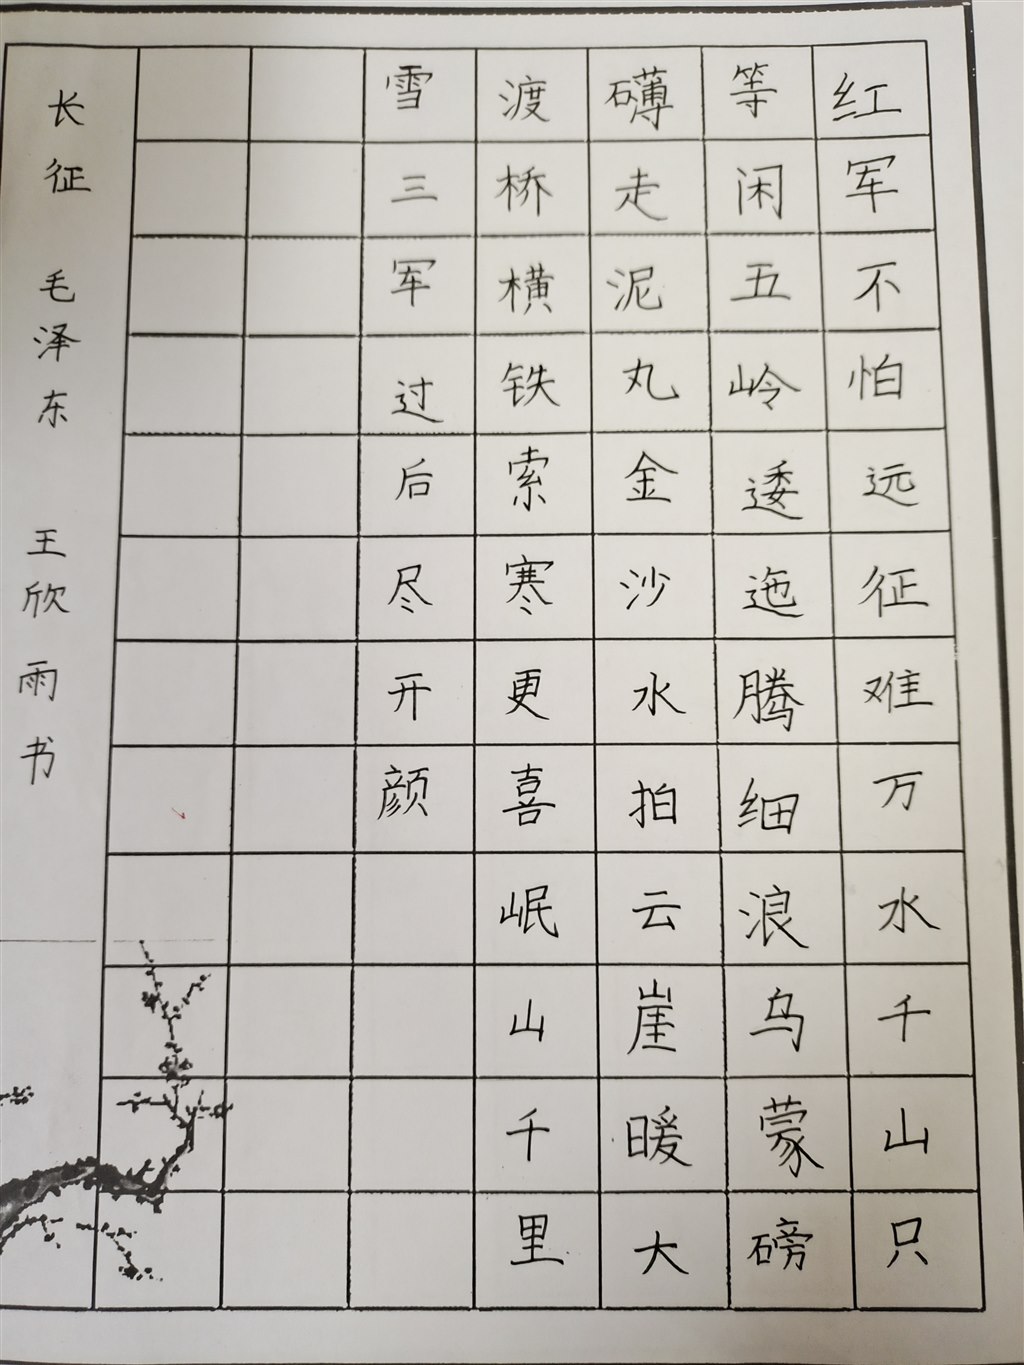 红军不怕远征难万水千山只
等闲五岭逶迤腾细浪乌蒙磅
礴走泥丸金沙水拍云崖暖大
渡桥横铁索寒更喜岷山千里
雪三军过后尽开颜
长征 毛泽东 王欣雨书